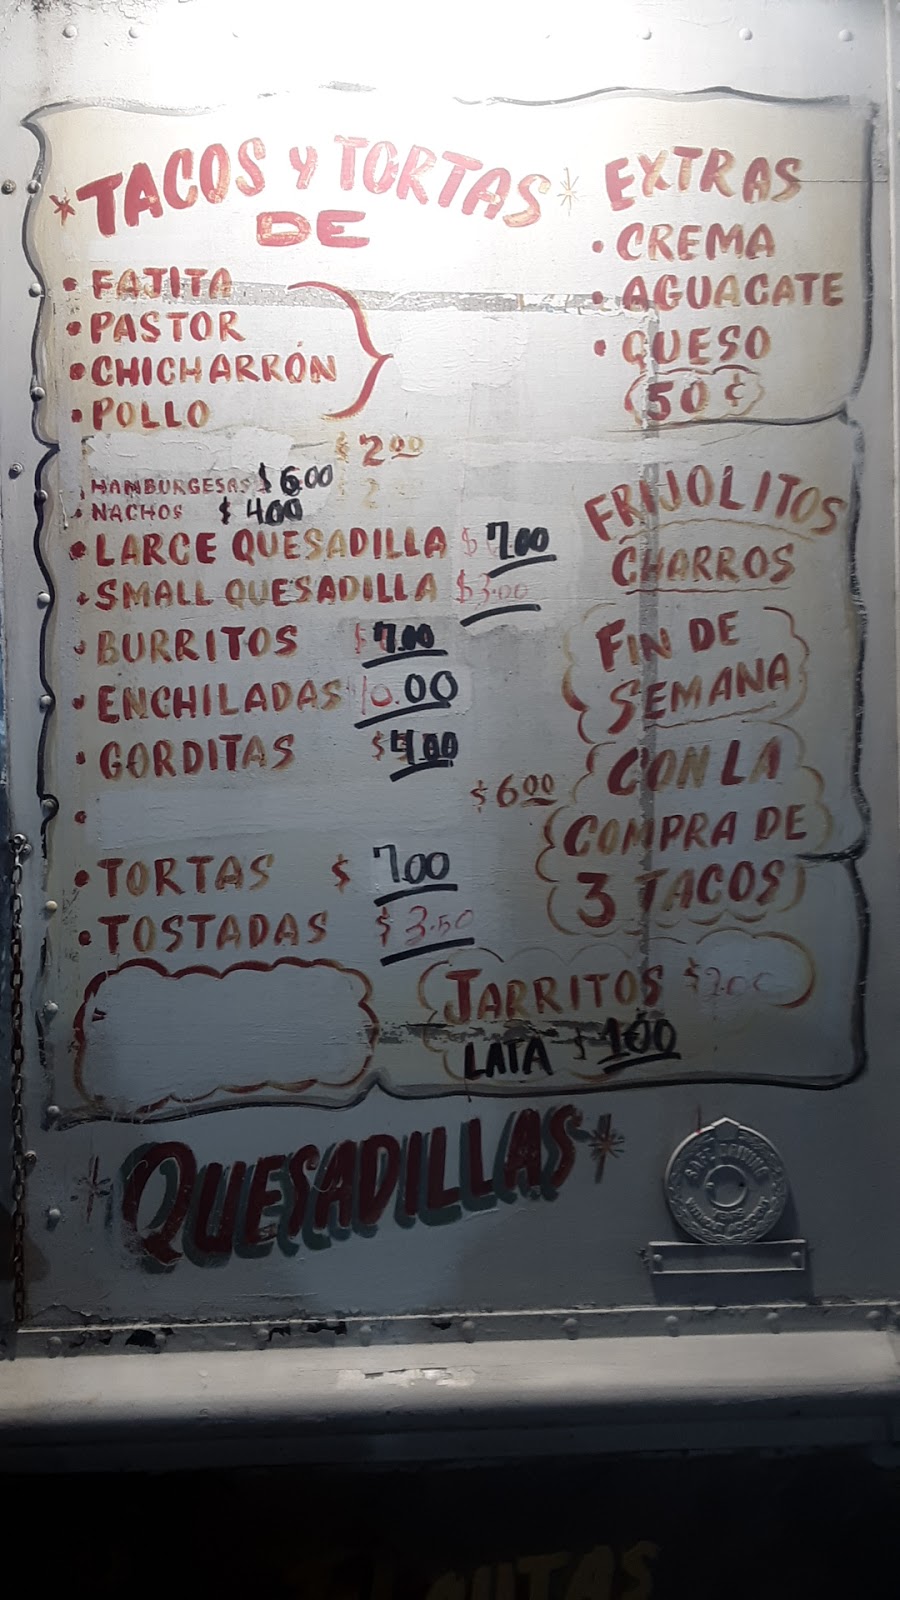 TACOS Y TORTAS
DE
• FAJITA
• PASTOR
• CHICHARRÓN
• POLLO
$2.00
• HAMBURGESAS $6.00
• NACHOS $4.00
• LARGE QUESADILLA $7.00
• SMALL QUESADILLA $3.00
• BURRITOS $7.00
• ENCHILADAS 10.00
• GORDITAS $4.00
$6.00
• TORTAS $7.00
• TOSTADAS $3.50
EXTRAS
• CREMA
• AGUACATE
• QUESO
50¢
FRIJOLITOS
CHARROS
FIN DE
SEMANA
CON LA
COMPRA DE
3 TACOS
JARRITOS $2.00
LATA $1.00
QUESADILLAS
SAFE DRIVING